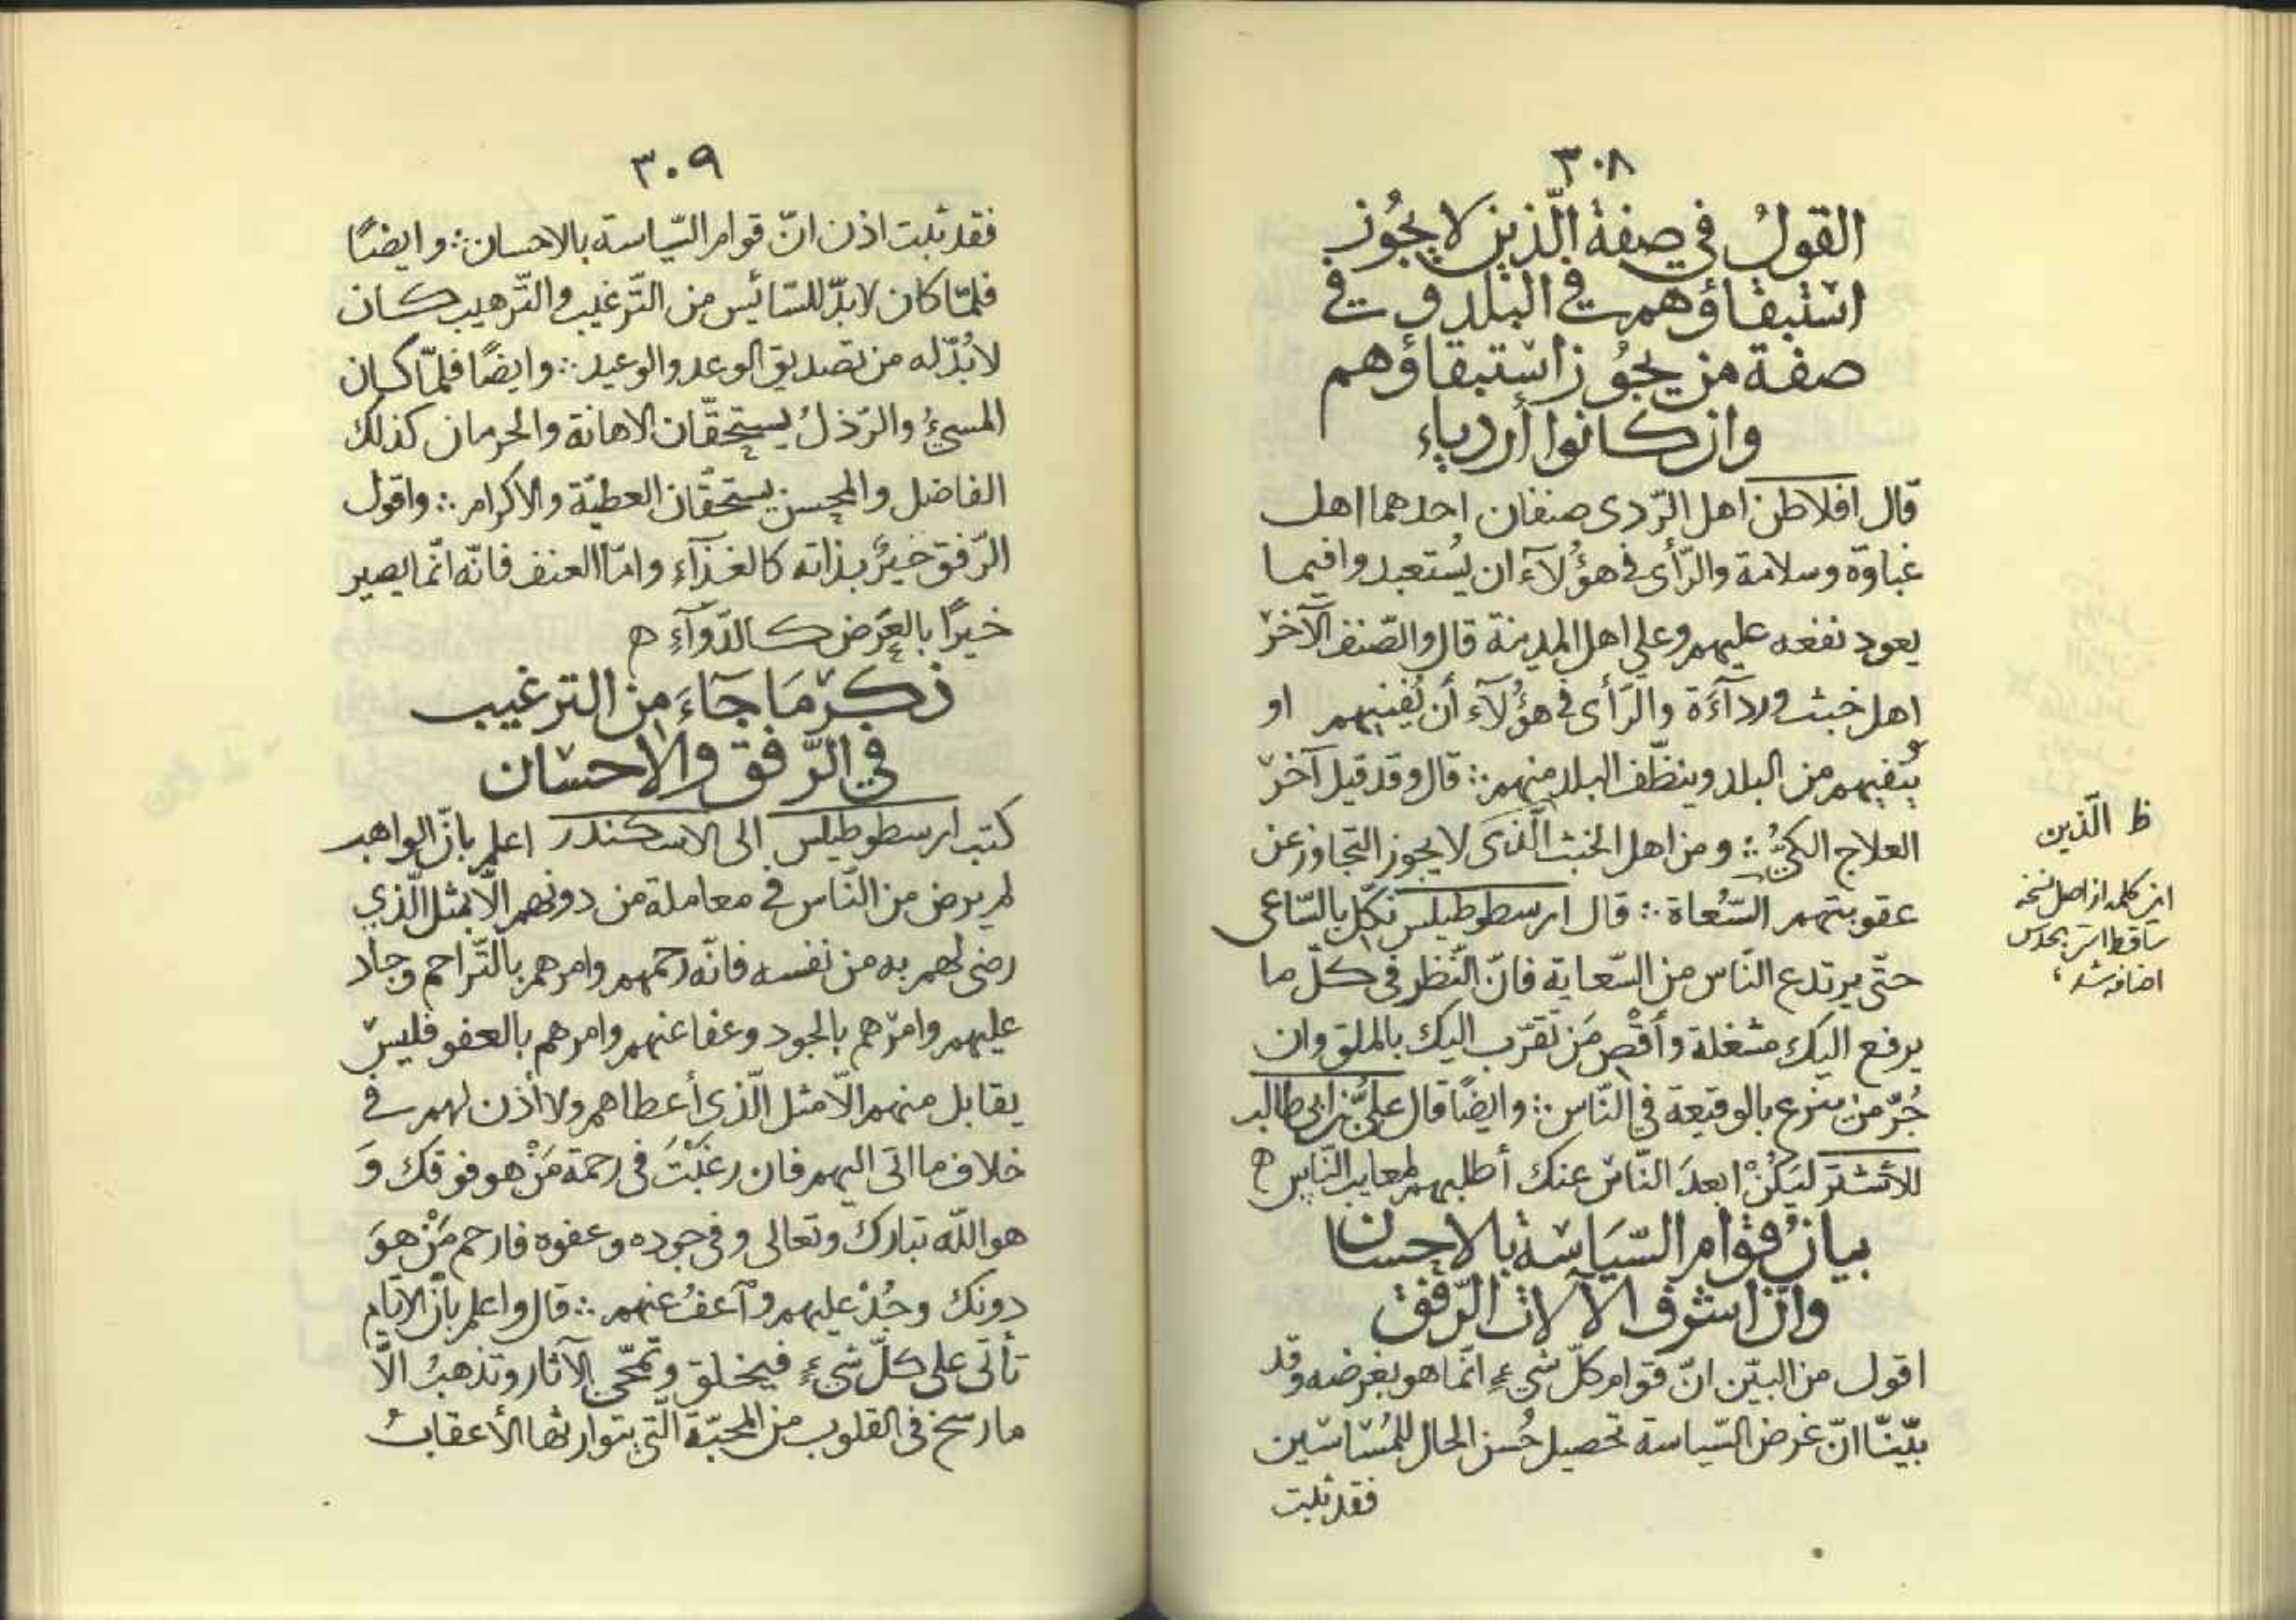 ٣٠٨
القولُ في صفة الّذين لا يجُوز
استبقاؤهم في البلد و في
صفة من يجُوز استبقاؤهم
وان كانوا أردياء
قال افلاطن اهل الرّدى صنفان احدهما اهل
غباوة وسلامة والرّأى في هؤُلآء ان يُستعبدوا فيما
يعود نفعه عليهم وعلى اهل المدينة قال والصّنف الآخر
اهل خبث ورداآءَة والرَأى في هؤُلآء أن يُفنيهم او
يُنفيهم من البلد وينظّف البلد منهم ∴ قال وقد قيل آخر
العلاج الكيُّ ∴ ومن اهل الخبث الّذى لا يجوز التجاوز عن
عقوبتهم السّعُاة ∴ قال ارسطوطيلس نكّل بالسّاعى
حتّى يرتدع النّاس من السّعاية فانّ النّظر في كلّ ما
يرفع اليك مشغلة وأَقْصِ مَن تَقرّب اليك بالملق وان
جُرّ من ينزع بالوقيعة في النّاس ∴ وايضًا قال علىُّ بن ابى طالب
للأشتر ليَكُنْ ابعدَ النّاس عنك أطلبهم لمعايب النّاس ه
بيانُ قوام السّيَاسَة بالاحسان
وانّ اشرف الآلات الرّفق
اقول من البيّن انّ قوام كلّ شىءٍ انّما هو بغرضه وقد
بيّنّا انّ غرض السّياسة تحصيل حُسن الحال للمُساسين
فقد ثبت
ظ الّذين
اين كلمه از اصل نسخه
ساقط است بحدس
اضافه شد؛
٣٠٩
فقد ثبت اذن انّ قوام السّياسة بالاحسان ∴ وايضًا
فلمّا كان لابدّ للسّائس من التّرغيب والتّرهيب كان
لابُدّ له من تصديق الوعد والوعيد ∴ وايضًا فلمّا كان
المسيءُ والرّذلُ يستحقّان الاهانة والحرمان كذلك
الفاضل والمحسن يستحقّان العطيّة والاكرام ∴ واقول
الرّفق خيرٌ بذاته كالغذآءِ وامّا العنف فانّه انّما يصير
خيرًا بالعَرَض كالدّوآءِ ه
ذكر مَا جَآءَ من الترغيب
في الرّفق والاحسَان
كتب ارسطوطيلس الى الاسكندر اعلم بانّ الواهب
لم يرض من النّاس في معاملة من دونهم الّا بمثل الّذي
رضى لهم به من نفسه فانّه رحمهم وامرهم بالتّراحم وجاد
عليهم وامرهم بالجود وعفا عنهم وامرهم بالعفو فليس
يقابل منهم الّا مثل الّذى أعطاهم ولا أذن لهم في
خلاف ما اتى اليهم فان رغَبْتَ في رحمة مَنْ هو فوقك وَ
هو اللّه تبارك وتعالى وفي جوده وعفوه فارحم مَنْ هوَ
دونك وجُدْ عليهم وآعفُ عنهم ∴ قال واعلم بانّ الايّام
تأتى على كلّ شىءٍ فيخلق وتمحّى الآثار وتذهبُ الّا
ما رسخ في القلوب من المحبّة الّتي يتوارثها الأعقابُ